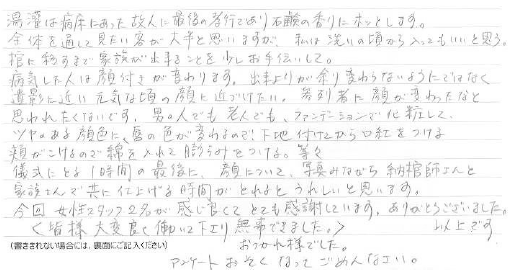 湯灌は病床にあった故人に最後の孝行であり石鹸の香りにホッとします。
全体を通して見たい客が大半と思いますが、私は洗いの頃から入ってもいいと思う。
棺に移すまで家族が出来ることを少しお手伝いして。
病気した人は顔付きが変わります。出来上りが余り変わらないようにではなく
遺影に近い元気な頃の顔に近づけたい。参列者に顔が変わったなと
思われたくないです。男の人でも老人でも、ファンデーションで化粧して、
ツヤのある顔色に、唇の色が変わるので下地付けてから口紅をつける
頬がこけるので綿を入れて膨らみをつける。等々
儀式にとる1時間の最後に、顔について、写真みながら納棺師さんと
家族でんで共に仕上げる時間がとれるとうれしいと思います。
今回女性スタッフ2名が感じ良くてとても感謝しています。ありがとうございました。
＜皆様大変良く働いて下さり無事できました。＞ 以上です
(書ききれない場合には、裏面にご記入ください) おつかれ様でした。
アンケートおそくなってごめんなさい。